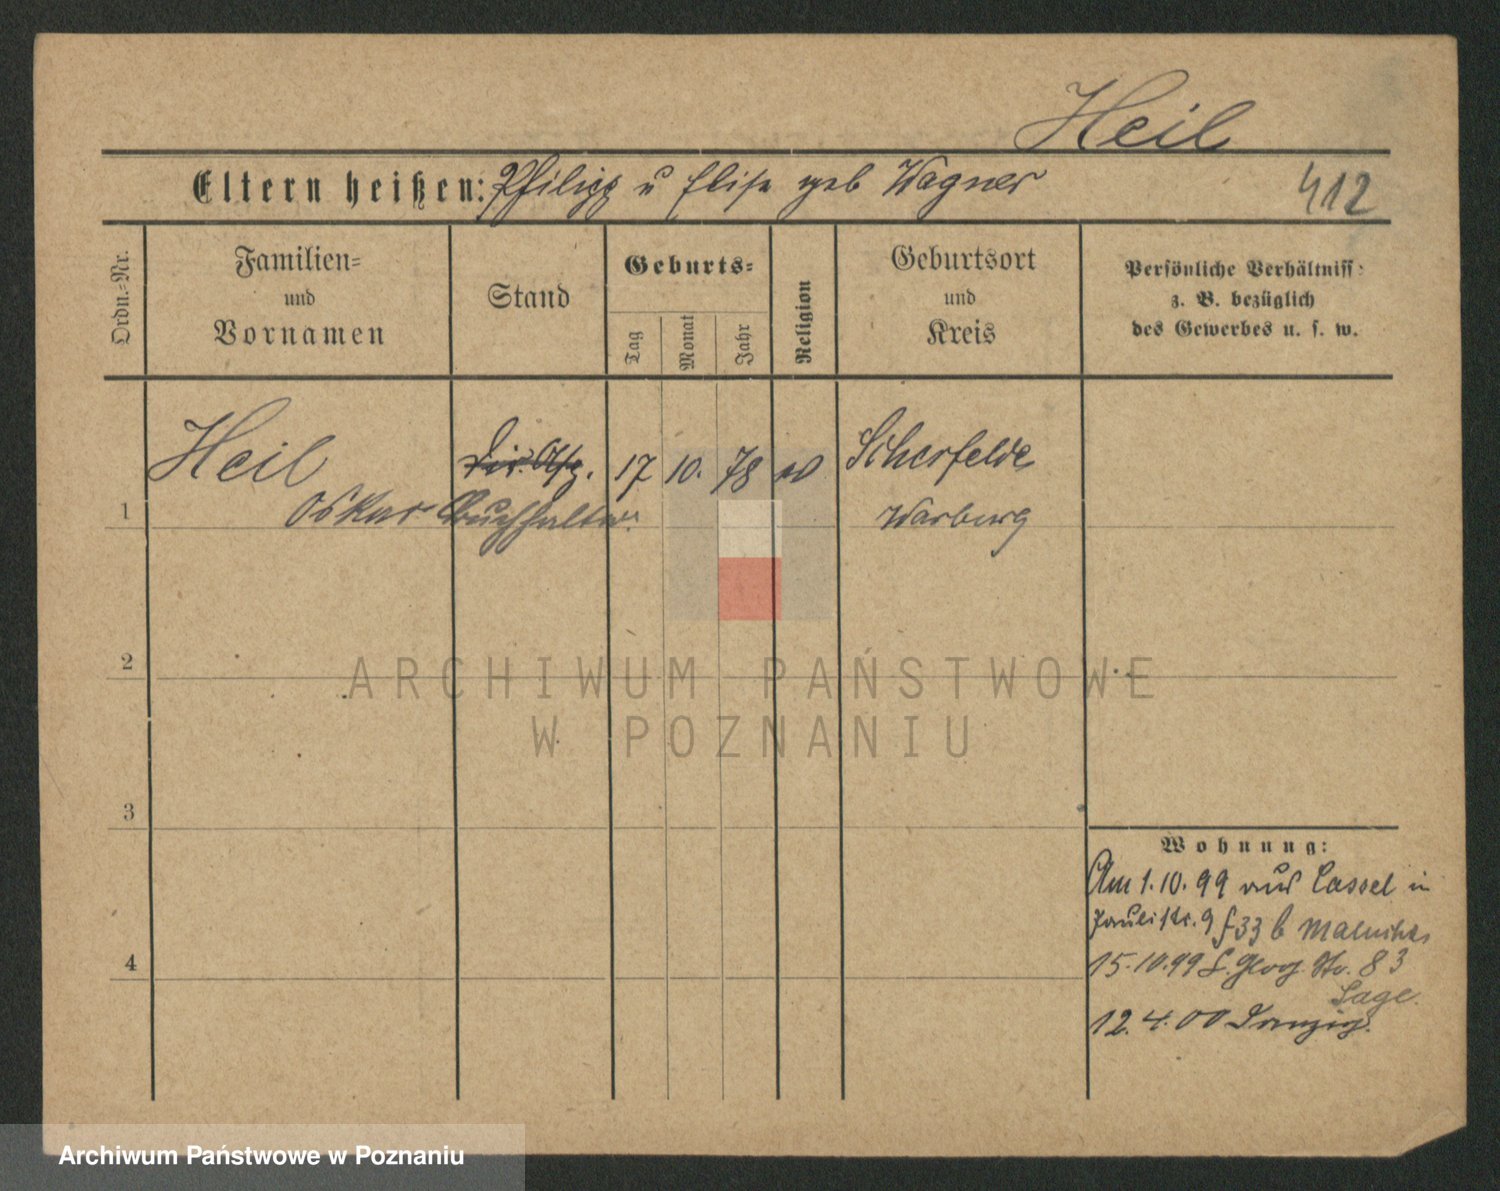 Heil
Eltern heißen: Philipp u Elise geb Wagner
412
Ordn.=Nr.
Familien=
und
Vornamen
Stand
Geburts=
Tag
Monat
Jahr
Religion
Geburtsort
und
Kreis
Persönliche Verhältniss:
z. B. bezüglich
des Gewerbes u. s. w.
Heil 17 10. 78 Scherfelde
1 Oskar Buchhalter Warburg
2
3
4
Wohnung:
Am 1.10.99 aus Cassel in
Paulistr. 9 33 b
15.10.99 Glog. Str. 83
Sage.
12.4.00 Danzig.
ARCHIWUM PAŃSTWOWE
W POZNANIU
Archiwum Państwowe w Poznaniu